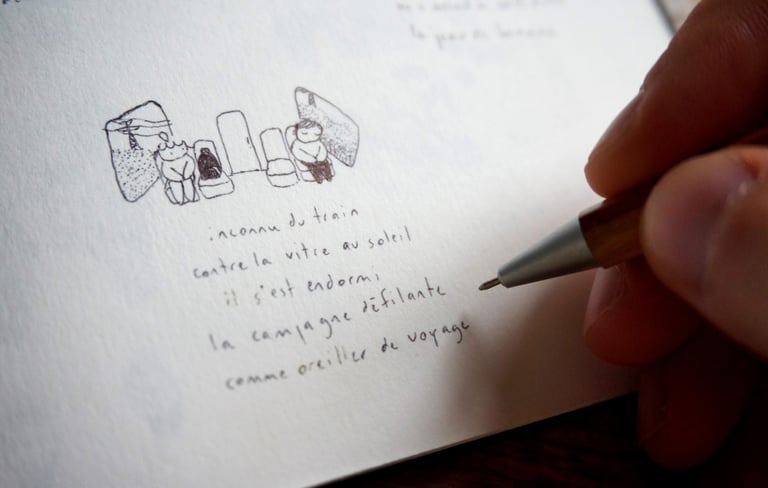 inconnu du train
contre la vitre au soleil
il s'est endormi
la campagne défilante
comme oreiller de voyage